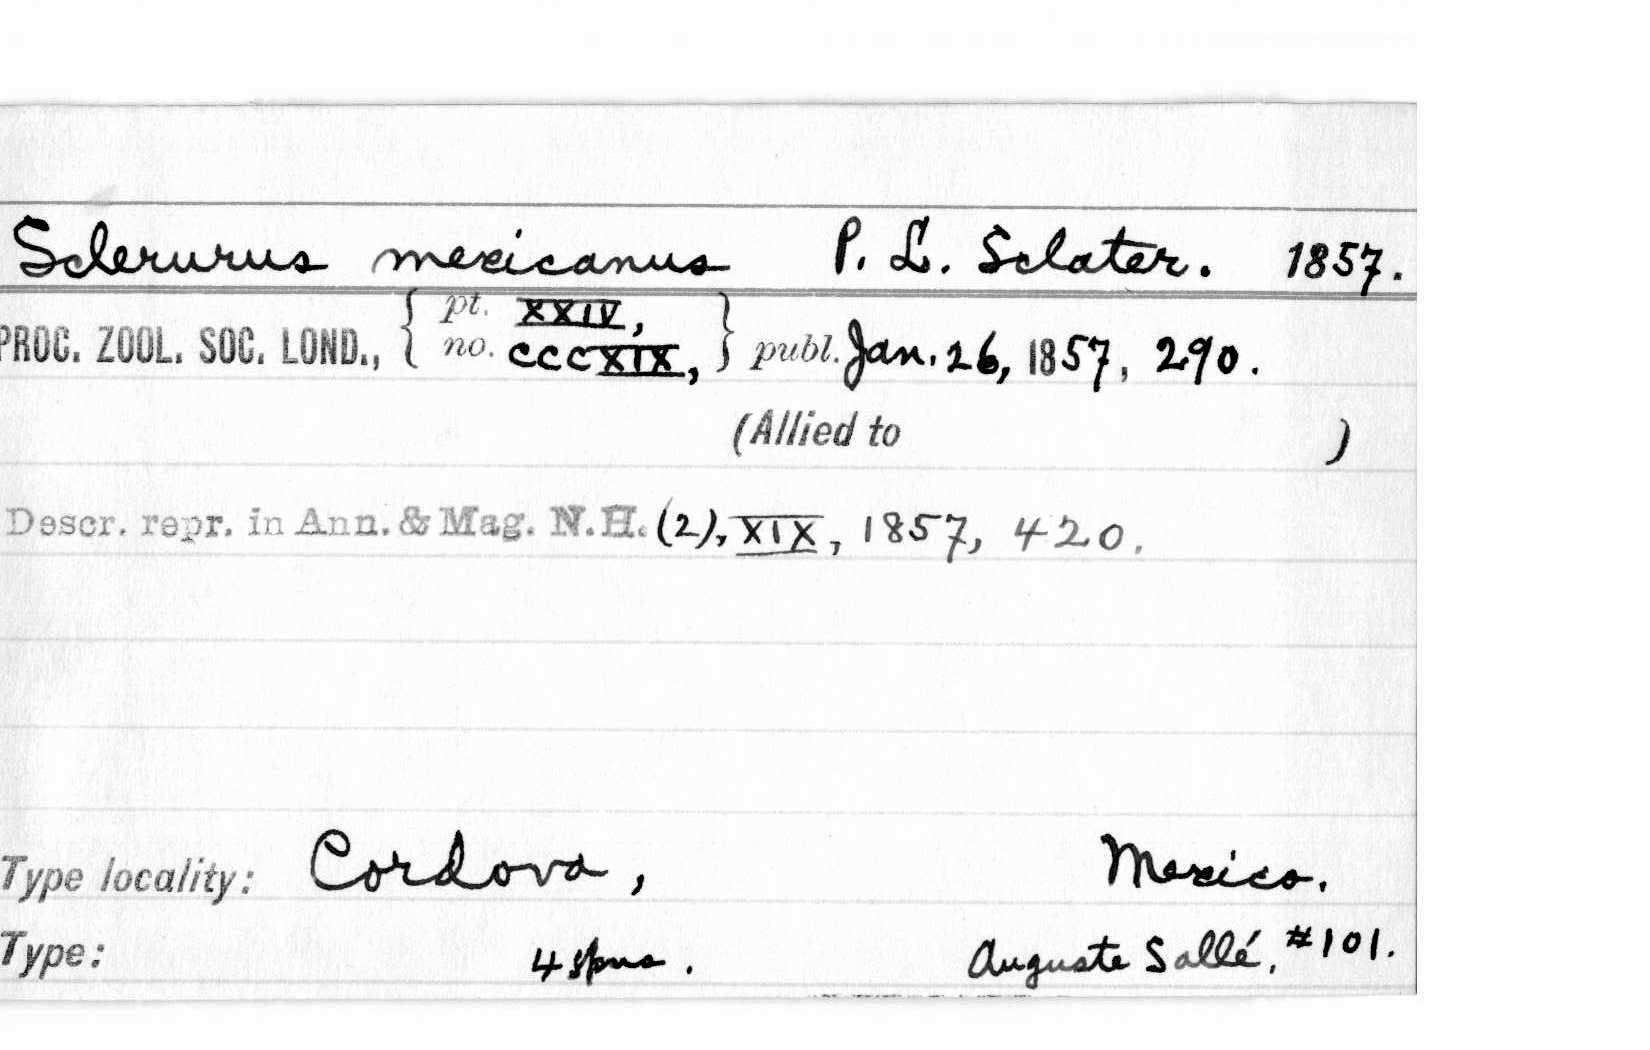 Sclerurus mexicanus P. L. Sclater. 1857.
PROC. ZOOL. SOC. LOND., { pt. XXIV, no. CCCXIX, } publ. Jan. 26, 1857, 290.
(Allied to )
Descr. repr. in Ann. & Mag. N.H. (2), XIX, 1857, 420.
Type locality: Cordova, Mexico.
Type: 4 spms. Auguste Sallé, #101.